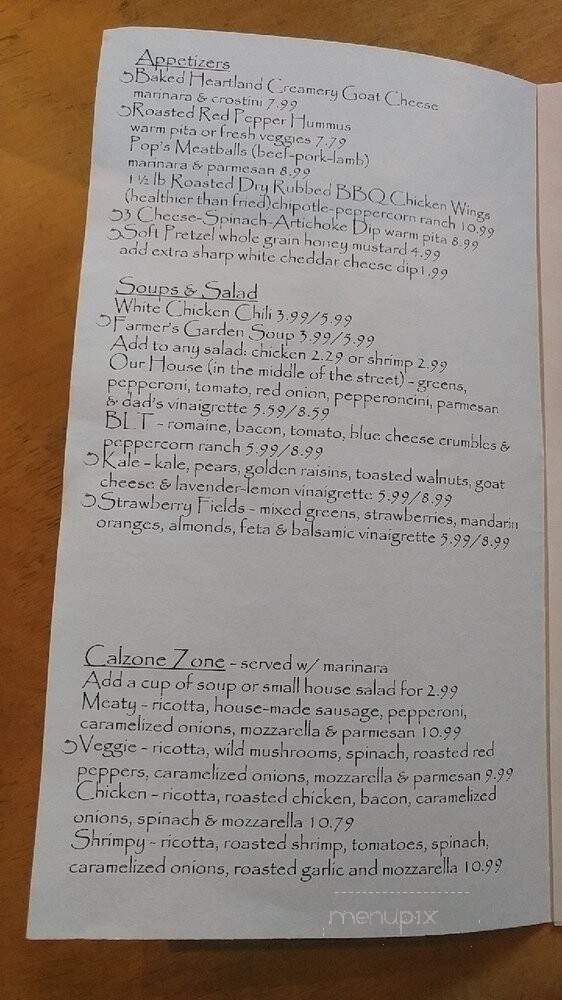 Appetizers
Baked Heartland Creamery Goat Cheese
marinara & crostini 7.99
Roasted Red Pepper Hummus
warm pita or fresh veggies 7.79
Pop's Meatballs (beef-pork-lamb)
marinara & parmesan 8.99
1 ½ lb Roasted Dry Rubbed BBQ Chicken Wings
(healthier than fried)chipotle-peppercorn ranch 10.99
3 Cheese-Spinach-Artichoke Dip warm pita 8.99
Soft Pretzel whole grain honey mustard 4.99
add extra sharp white cheddar cheese dip1.99
Soups & Salad
White Chicken Chili 3.99/5.99
Farmer's Garden Soup 3.99/5.99
Add to any salad: chicken 2.29 or shrimp 2.99
Our House (in the middle of the street) - greens,
pepperoni, tomato, red onion, pepperoncini, parmesan
& dad's vinaigrette 5.59/8.59
BLT - romaine, bacon, tomato, blue cheese crumbles &
peppercorn ranch 5.99/8.99
Kale - kale, pears, golden raisins, toasted walnuts, goat
cheese & lavender-lemon vinaigrette 5.99/8.99
Strawberry Fields - mixed greens, strawberries, mandarin
oranges, almonds, feta & balsamic vinaigrette 5.99/8.99
Calzone Zone - served w/ marinara
Add a cup of soup or small house salad for 2.99
Meaty - ricotta, house-made sausage, pepperoni,
caramelized onions, mozzarella & parmesan 10.99
Veggie - ricotta, wild mushrooms, spinach, roasted red
peppers, caramelized onions, mozzarella & parmesan 9.99
Chicken - ricotta, roasted chicken, bacon, caramelized
onions, spinach & mozzarella 10.79
Shrimpy - ricotta, roasted shrimp, tomatoes, spinach,
caramelized onions, roasted garlic and mozzarella 10.99
menupix